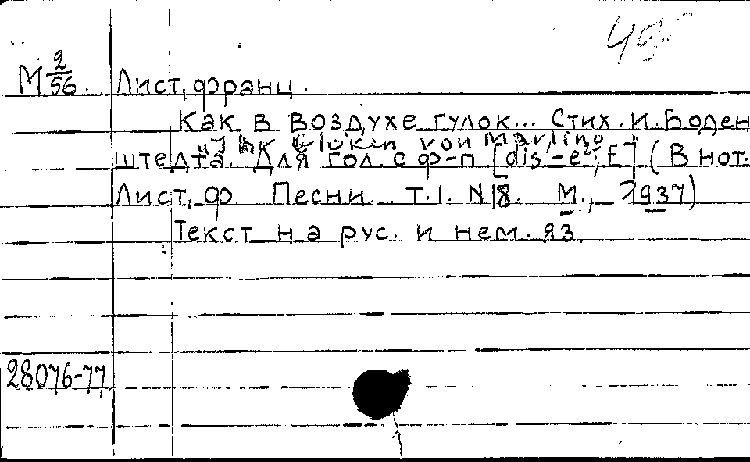 М 2/56. Лист, Франц.
Как в воздухе гулок... Стих. И. Боден
"Ihr Glocken von Marling"
штедта. Для гол. с ф-п [dis-e²; E] (В нот.
Лист, Ф Песни. Т. I. N 18. М., 1937)
Текст на рус. и нем. яз.
28076-77